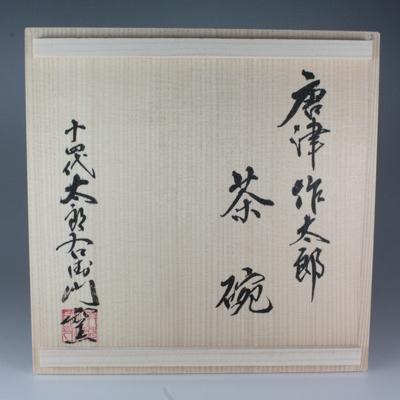 唐津 作太郎
茶碗
十四代 太郎右衛門 窯